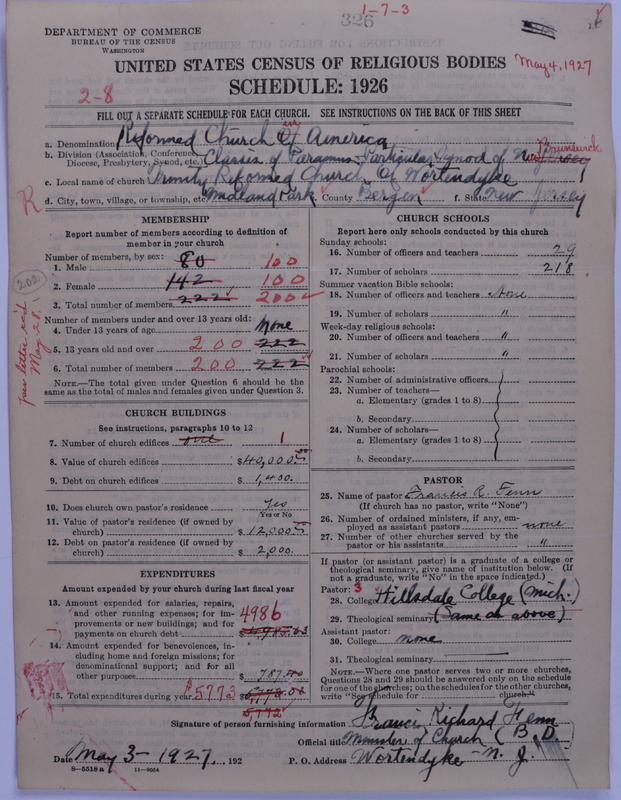 326
1-7-3
DEPARTMENT OF COMMERCE
BUREAU OF THE CENSUS
WASHINGTON
UNITED STATES CENSUS OF RELIGIOUS BODIES
May 4, 1927
2-8
SCHEDULE: 1926
FILL OUT A SEPARATE SCHEDULE FOR EACH CHURCH. SEE INSTRUCTIONS ON THE BACK OF THIS SHEET
a. Denomination Reformed Church in America
b. Division (Association, Conference, Diocese, Presbytery, Synod, etc.) Classis of Paramus-Particular Synod of New Jersey Brunswick
c. Local name of church Trinity Reformed Church of Wortendyke
d. City, town, village, or township, etc. Midland Park e. County Bergen f. State New Jersey
R
MEMBERSHIP
Report number of members according to definition of
member in your church
Number of members, by sex:
1. Male 80 100
2. Female 142 100
3. Total number of members 222 200
Number of members under and over 13 years old:
4. Under 13 years of age None
5. 13 years old and over 200 222
6. Total number of members 200 222
NOTE.—The total given under Question 6 should be the
same as the total of males and females given under Question 3.
202
per letter rec'd
May 28
CHURCH BUILDINGS
See instructions, paragraphs 10 to 12
7. Number of church edifices one 1
8. Value of church edifices $40,000.00
9. Debt on church edifices $1,400.
10. Does church own pastor's residence Yes
Yes or No
11. Value of pastor's residence (if owned by
church) $12,000.00
12. Debt on pastor's residence (if owned by
church) $2,000.
EXPENDITURES
Amount expended by your church during last fiscal year
13. Amount expended for salaries, repairs,
and other running expenses; for im-
provements or new buildings; and for
payments on church debt 4986
14. Amount expended for benevolences, in-
cluding home and foreign missions; for
denominational support; and for all
other purposes $787.00
15. Total expenditures during year $5773
5,772
CHURCH SCHOOLS
Report here only schools conducted by this church
Sunday schools:
16. Number of officers and teachers 29
17. Number of scholars 218
Summer vacation Bible schools:
18. Number of officers and teachers None
19. Number of scholars "
Week-day religious schools:
20. Number of officers and teachers "
21. Number of scholars "
Parochial schools:
22. Number of administrative officers
23. Number of teachers—
a. Elementary (grades 1 to 8)
b. Secondary
24. Number of scholars—
a. Elementary (grades 1 to 8)
b. Secondary
PASTOR
25. Name of pastor Francis R. Fenn
(If church has no pastor, write "None")
26. Number of ordained ministers, if any, em-
ployed as assistant pastors none
27. Number of other churches served by the
pastor or his assistants "
If pastor (or assistant pastor) is a graduate of a college or
theological seminary, give name of institution below. (If
not a graduate, write "No" in the space indicated.)
Pastor: 3
28. College Hillsdale College (Mich.)
29. Theological seminary (Same as above)
Assistant pastor:
30. College none
31. Theological seminary
NOTE.—Where one pastor serves two or more churches,
Questions 28 and 29 should be answered only on the schedule
for one of the churches; on the schedules for the other churches,
write "See schedule for church."
Signature of person furnishing information Francis Richard Fenn
Official title Minister of Church (B.D.
Date May 3-1927, 192
P. O. Address Wortendyke N. J.
8—5518 a 11—9054